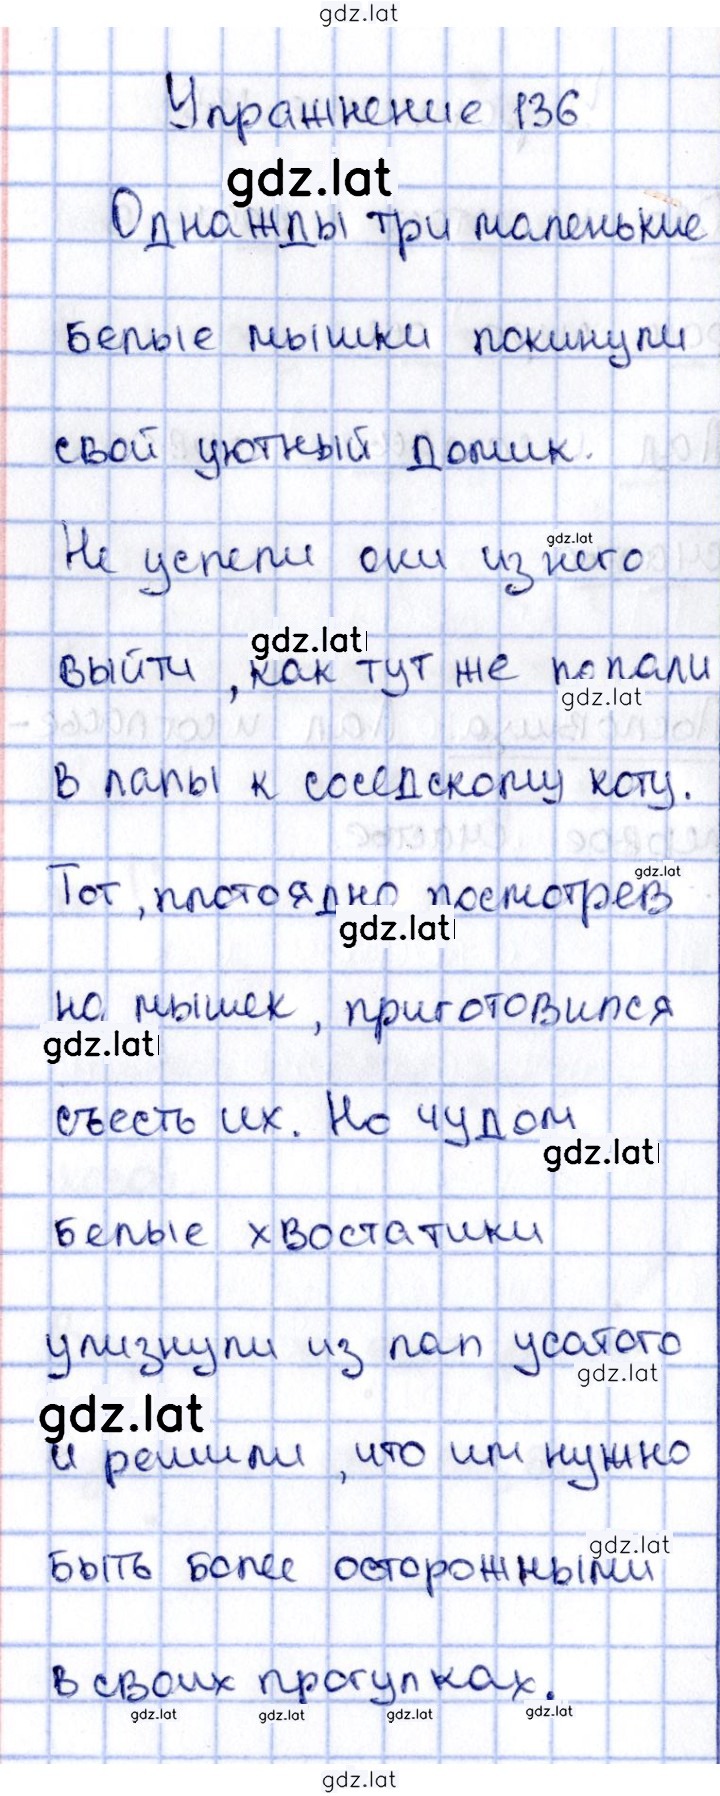 gdz.lat
Упражнение 136
gdz.lat
Однажды три маленькие
белые мышки покинули
свой уютный домик.
gdz.lat
Не успели они из него
gdz.lat
выйти, как тут же попали
gdz.lat
в лапы к соседскому коту.
gdz.lat
Тот, плотоядно посмотрев
gdz.lat
на мышек, приготовился
gdz.lat
съесть их. Но чудом
gdz.lat
белые хвостатики
улизнули из лап усатого
gdz.lat
gdz.lat
и решили, что им нужно
gdz.lat
быть более осторожными
в своих прогулках.
gdz.lat gdz.lat gdz.lat gdz.lat
gdz.lat